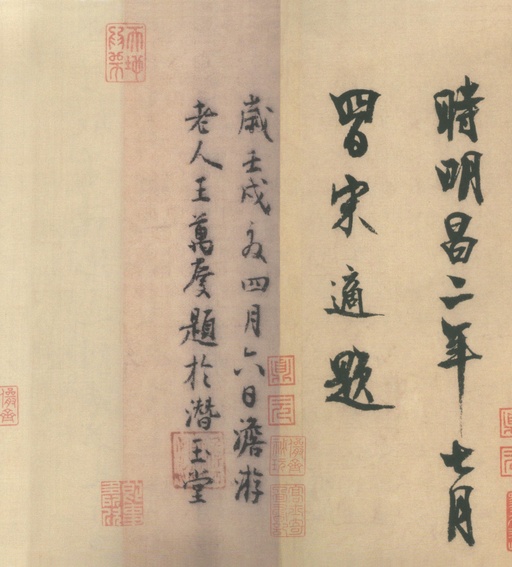 時明昌二年七月
四日宋適題
歲壬戌夏四月六日澹游
老人王萬慶題於潛玉堂